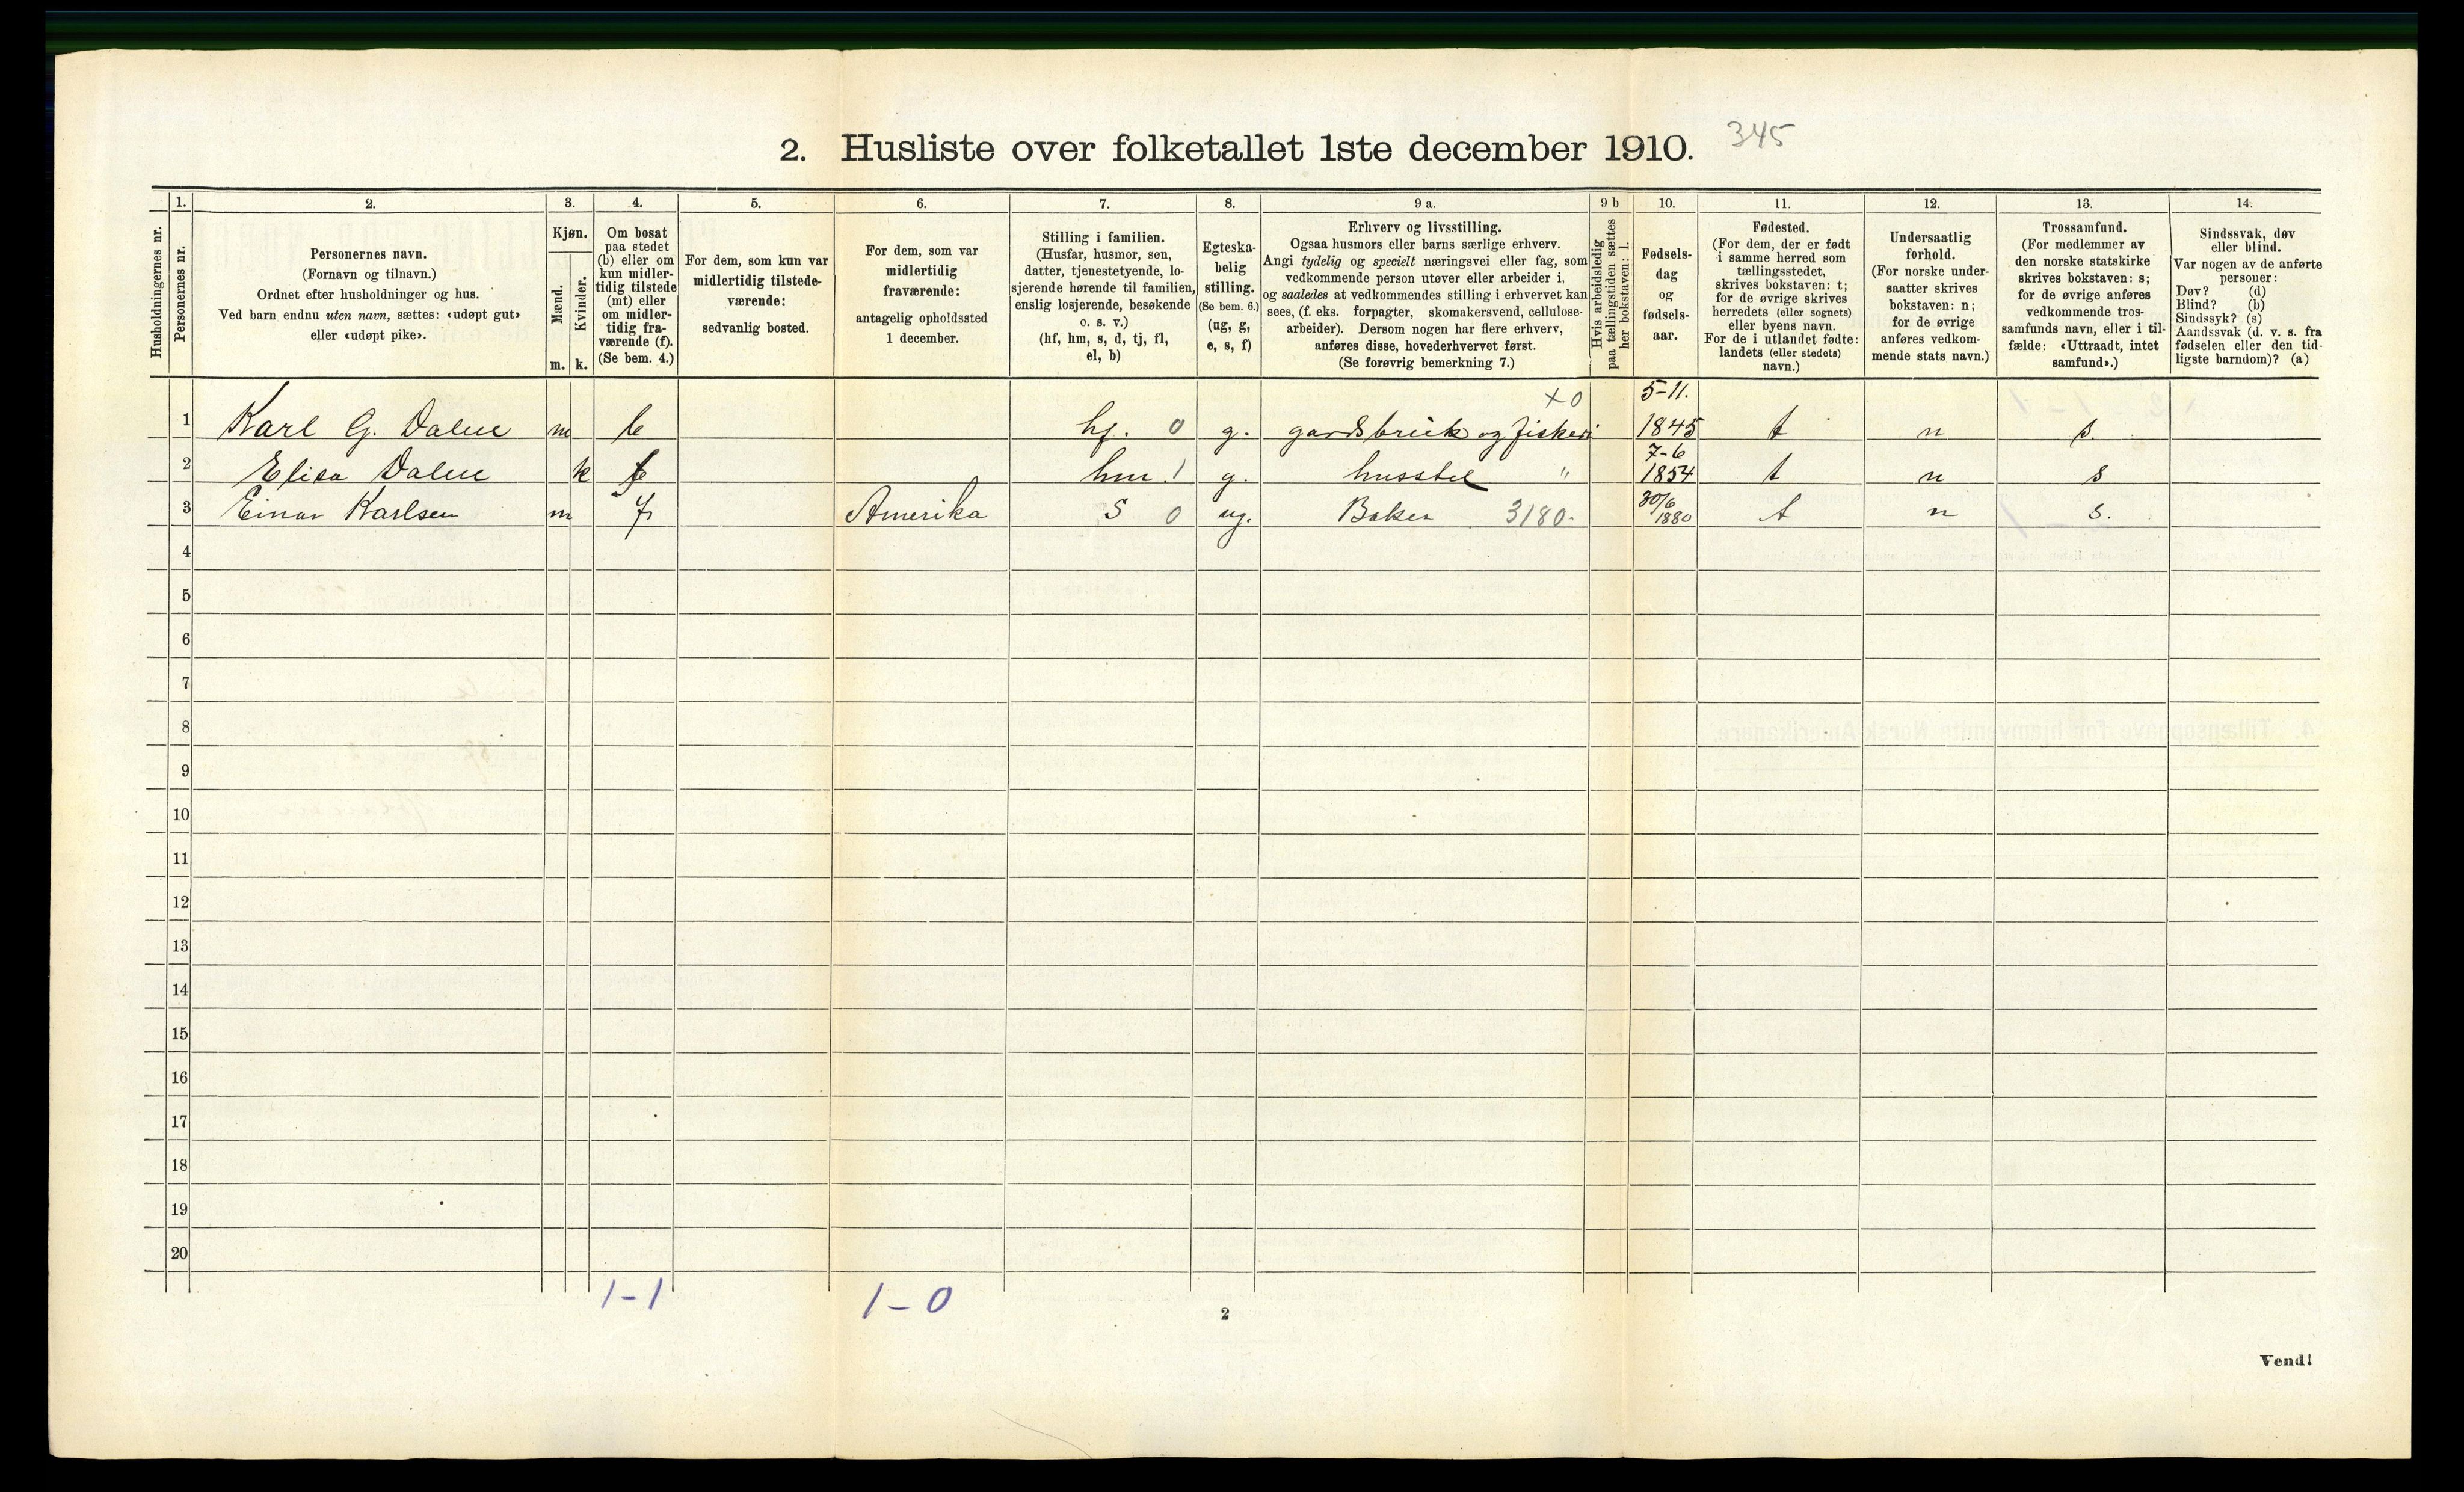 2. Husliste over folketallet 1ste december 1910. 345
Husholdningernes nr.
1.
Personernes nr.
2.
Personernes navn.
(Fornavn og tilnavn.)
Ordnet efter husholdninger og hus.
Ved barn endnu uten navn, sættes: «udøpt gut»
eller «udøpt pike».
3.
Kjøn.
Mænd.
Kvinder.
m. k.
4.
Om bosat
paa stedet
(b) eller om
kun midler-
tidig tilstede
(mt) eller
om midler-
tidig fra-
værende (f).
(Se bem. 4.)
5.
For dem, som kun var
midlertidig tilstede-
værende:
sedvanlig bosted.
6.
For dem, som var
midlertidig
fraværende:
antagelig opholdssted
1 december.
7.
Stilling i familien.
(Husfar, husmor, søn,
datter, tjenestetyende, lo-
sjerende hørende til familien,
enslig losjerende, besøkende
o. s. v.)
(hf, hm, s, d, tj, fl,
el, b)
8.
Egteska-
belig
stilling.
(Se bem. 6.)
(ug, g,
e, s, f)
9 a.
Erhverv og livsstilling.
Ogsaa husmors eller barns særlige erhverv.
Angi tydelig og specielt næringsvei eller fag, som
vedkommende person utøver eller arbeider i,
og saaledes at vedkommendes stilling i erhvervet kan
sees, (f. eks. forpagter, skomakersvend, cellulose-
arbeider). Dersom nogen har flere erhverv,
anføres disse, hovederhvervet først.
(Se forøvrig bemerkning 7.)
9 b
Hvis arbeidsledig
paa tællingstiden sættes
her bokstaven: l.
10.
Fødsels-
dag
og
fødsels-
aar.
11.
Fødested.
(For dem, der er født
i samme herred som
tællingsstedet,
skrives bokstaven: t;
for de øvrige skrives
herredets (eller sognets)
eller byens navn.
For de i utlandet fødte:
landets (eller stedets)
navn.)
12.
Undersaatlig
forhold.
(For norske under-
saatter skrives
bokstaven: n;
for de øvrige
anføres vedkom-
mende stats navn.)
13.
Trossamfund.
(For medlemmer av
den norske statskirke
skrives bokstaven: s;
for de øvrige anføres
vedkommende tros-
samfunds navn, eller i til-
fælde: «Uttraadt, intet
samfund».)
14.
Sindssvak, døv
eller blind.
Var nogen av de anførte
personer:
Døv? (d)
Blind? (b)
Sindssyk? (s)
Aandssvak (d. v. s. fra
fødselen eller den tid-
ligste barndom)? (a)
x 0 5-11.
1 Karl G. Dalen m b hf. 0 g. gardsbruk og fiskeri 1845 t n s.
7-6
2 Elisa Dalen k b hm. 1 g. husstel " 1854 t n s
3 Einar Karlsen m f Amerika S 0 ug. Baker 3180. 30/6 1880 t n s.
4
5
6
7
8
9
10
11
12
13
14
15
16
17
18
19
20
1-1 1-0
2
Vend!